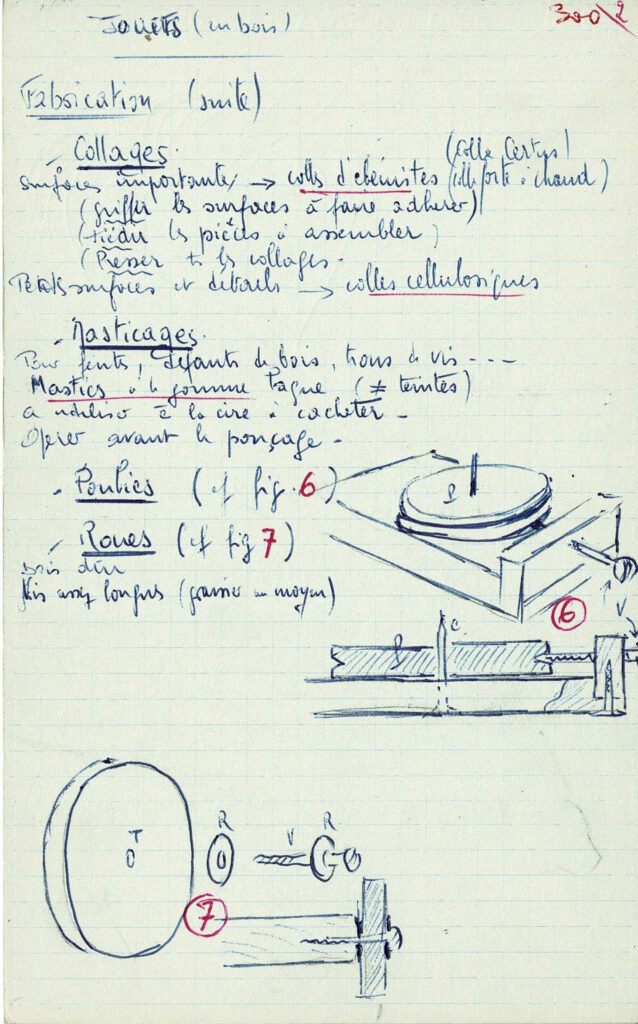 Jouets (en bois)
300/2
Fabrication (suite)
- Collages.
(Colle Certus!
Surfaces importantes → colles d'ébénistes (colle forte à chaud)
(griffer les surfaces à faire adhérer)
(tiédir les pièces à assembler)
(Presser ts les collages -
Petites surfaces et détails → colles cellulosiques
- Masticages.
Pour fentes, défauts de bois, trous de vis ---
Mastics à la gomme laque (≠ teintes)
à utiliser à la cire à cacheter -
Opérer avant le ponçage -
- Poulies (cf fig. 6)
- Roues (cf fig 7)
bois dur
Vis assez longues (graisser au moyeu)
P
6
V
C
P
T
R
V
R
7